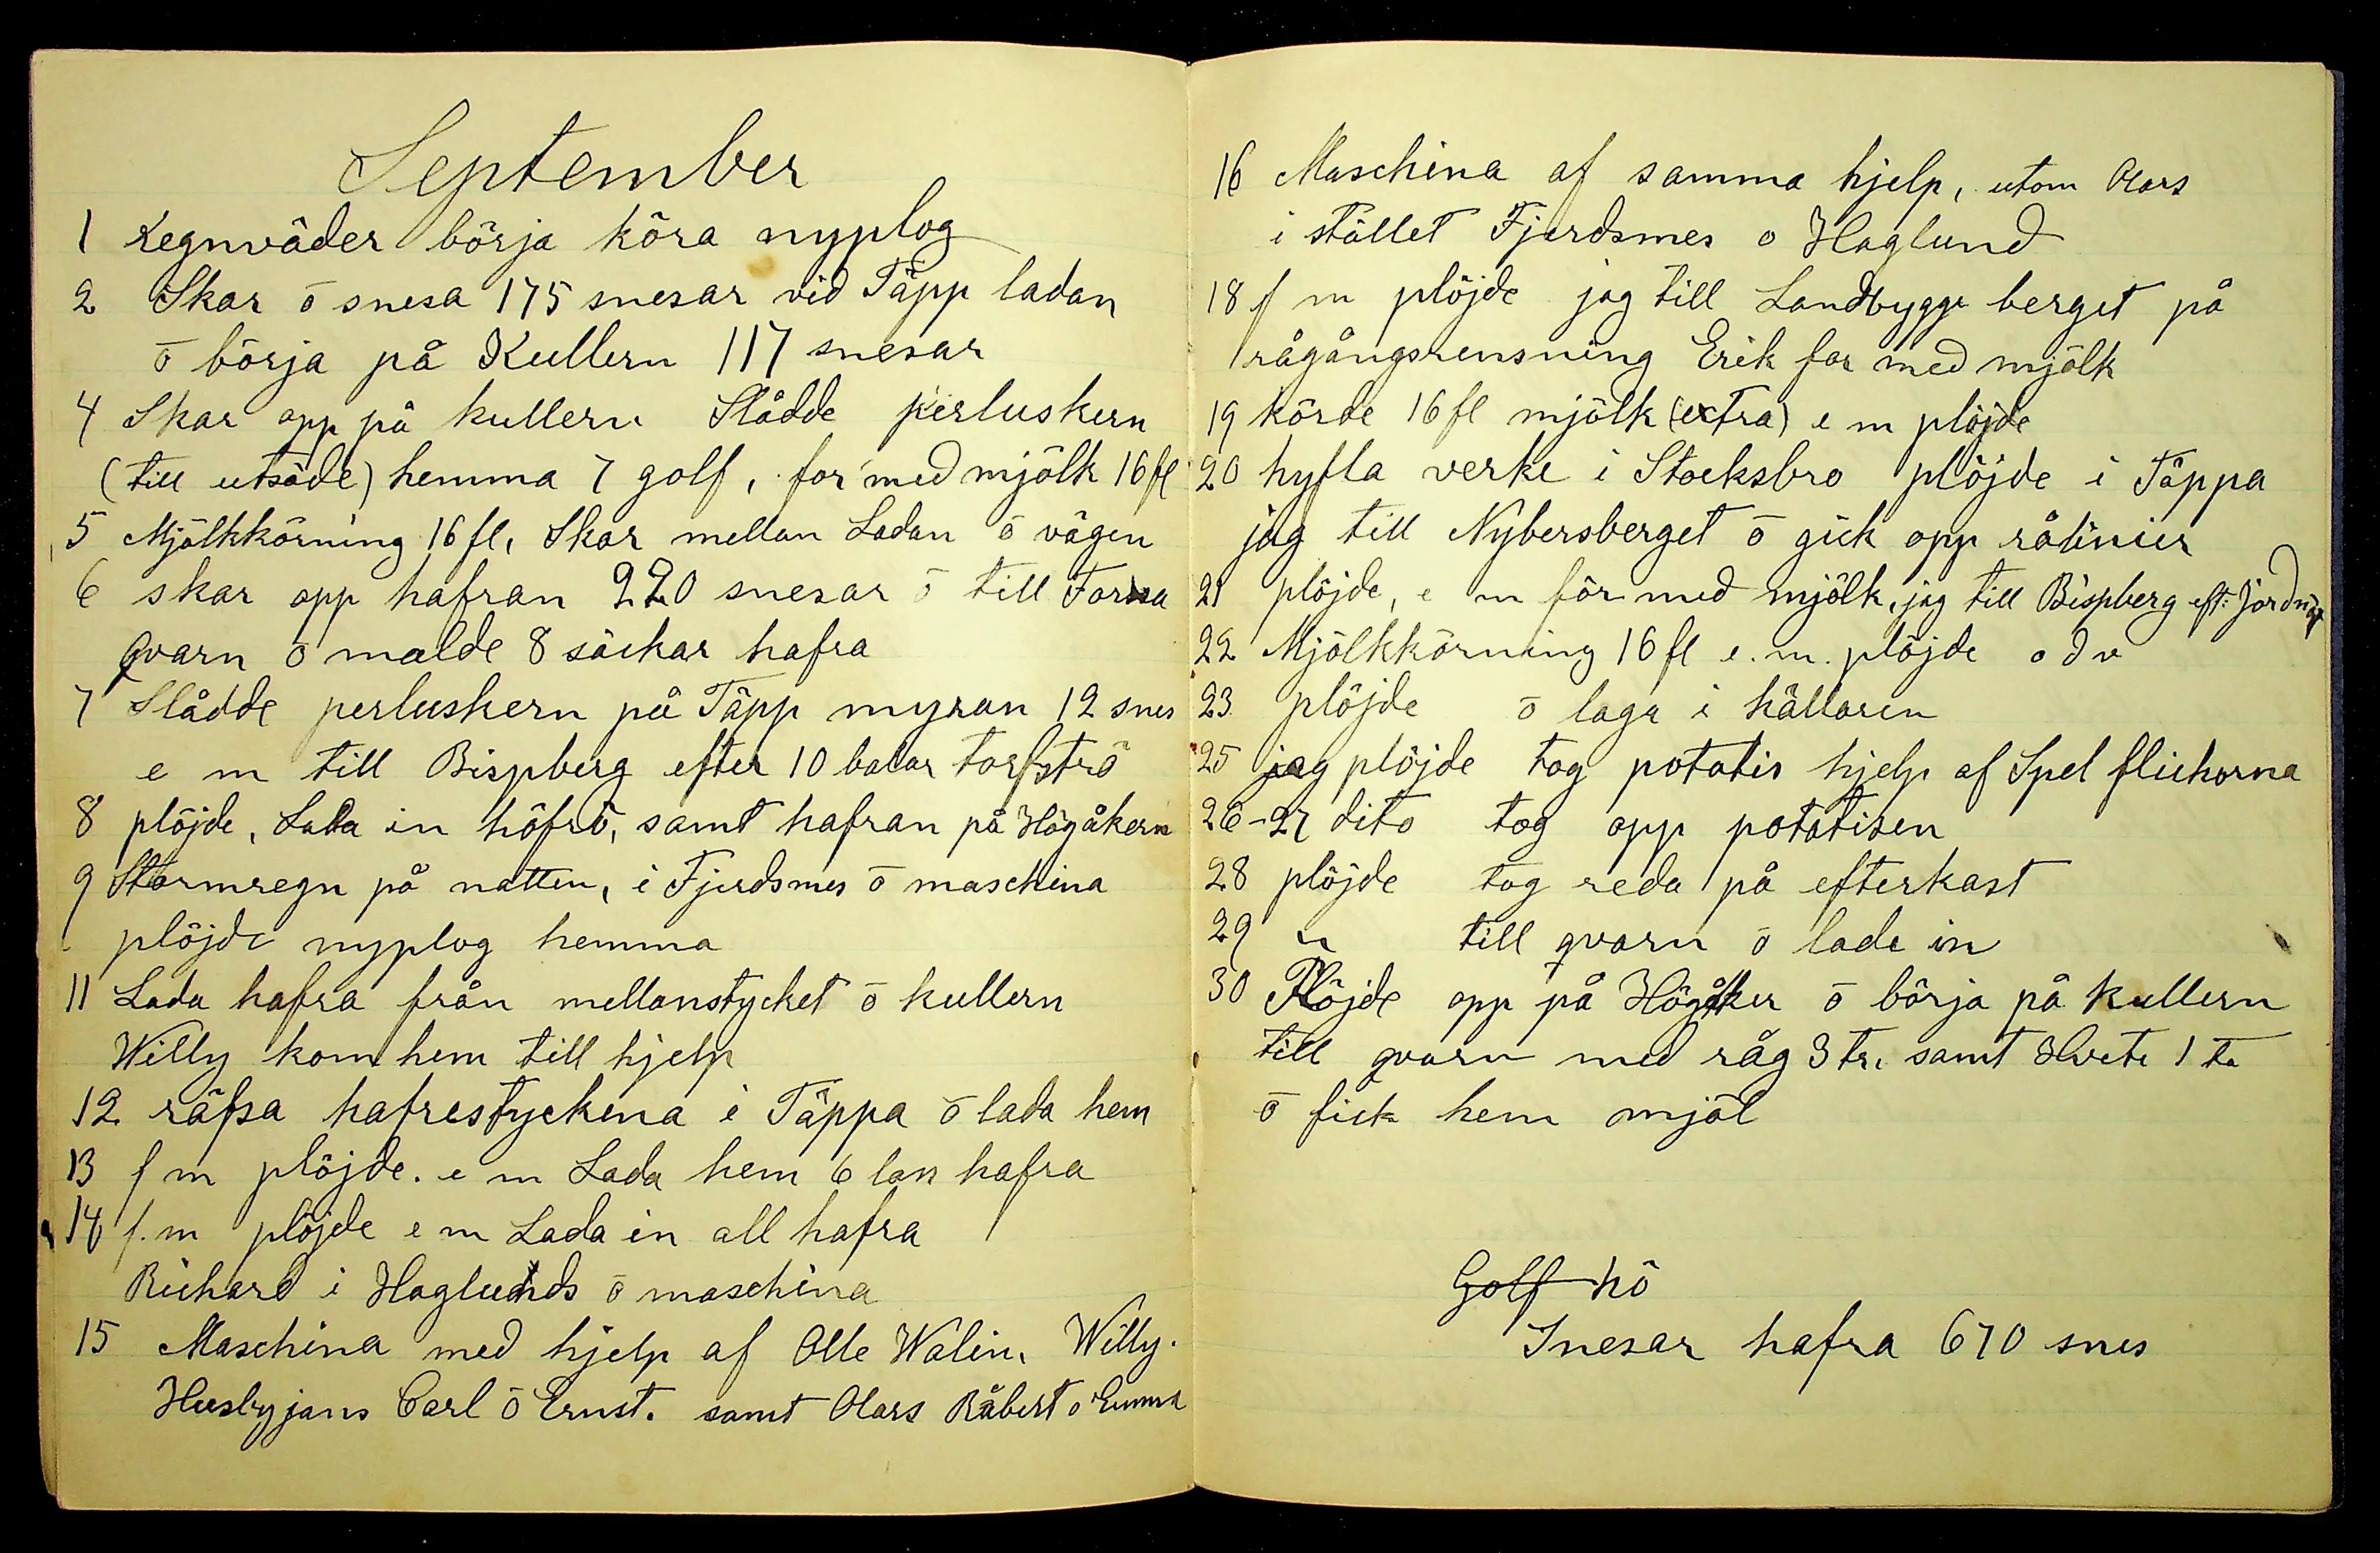 September
1 Regnväder börja köra nyplog
2 Skar ō snesa 175 snesar vid Täpp ladan
ō börja på Kullern 117 snesar
4 Skar opp på kullern Slådde perluskern
(till utsäde) hemma 7 golf, for med mjölk 16 fl
5 Mjölkkörning 16 fl, Skar mellan Ladan ō vägen
6 skar opp hafran 220 snesar ō till Forssa
qvarn ō malde 8 säckar hafra
7 Slådde perluskern på Täpp myran 12 snes
e m till Bispberg efter 10 balar torfströ
8 plöjde, Lada in höfrö, samt hafran på Högåkern
9 Stormregn på natten, i Fjerdsmes ō maschina
plöjde nyplog hemma
11 Lada hafra från mellanstycket ō kullern
Willy kom hem till hjelp
12 räfsa hafrestyckena i Täppa ō lada hem
13 f m plöjde. e m Lada hem 6 lass hafra
14 f.m plöjde e m Lada in all hafra
Richard i Haglunds ō maschina
15 Maschina med hjelp af Olle Walin, Willy.
Husbyjans Carl ō Ernst. samt Olars Råbert o Emma
16 Maschina af samma hjelp, utom Olars
i stället Fjerdsmes o Haglund
18 f m plöjde jag till Landbygge berget på
rågångsrensning Erik for med mjölk
19 körde 16 fl mjölk (extra) e m plöjde
20 hyfla verke i Stocksbro plöjde i Täppa
jag till Nybersberget ō gick opp rålinier
21 plöjde, e m för med mjölk, jag till Bispberg eft:
22 Mjölkkörning 16 fl e.m. plöjde o d v
23 plöjde ō laga i källaren
25 jag plöjde tog potatis hjelp af Spel flickorna
26-27 dito tog opp potatisen
28 plöjde tog reda på efterkast
29 " till qvarn ō lade in
30 Plöjde opp på Högåker ō börja på kullern
till qvarn med råg 3 tr. samt Hvete 1 ta
ō fick hem mjöl
Golf hö
Snesar hafra 670 snes